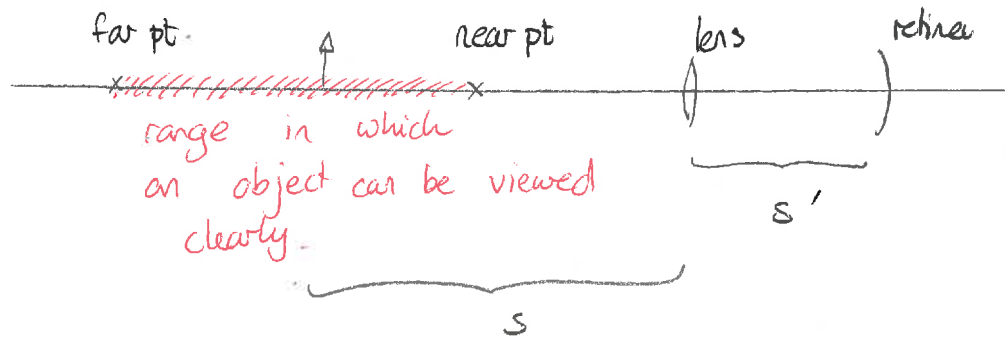 far pt. near pt lens retina
range in which
an object can be viewed
clearly.
s'
s